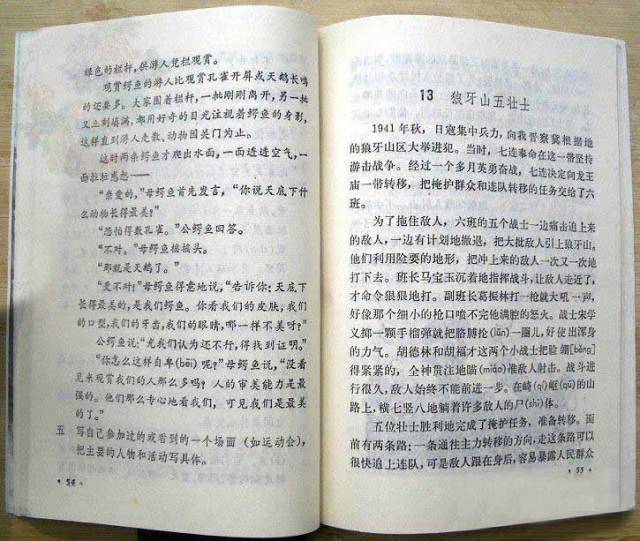 绿色的栏杆，供游人凭栏观赏。
观赏鳄鱼的游人比观赏孔雀开屏或天鹅长鸣
的还要多。大家围着栏杆，一批刚刚离开，另一批
又立刻填满，都用好奇的目光注视着鳄鱼的身影，
这样直到游人走散、动物园关门为止。
这时两条鳄鱼才爬出水面，一面透透空气，一
面拉拉感想——
“亲爱的，”母鳄鱼首先发言，“你说天底下什
么动物长得最美？”
“恐怕得数孔雀。”公鳄鱼回答。
“不对。”母鳄鱼摇摇头。
“那就是天鹅了。”
“更不对！”母鳄鱼得意地说，“告诉你：天底下
长得最美的，是我们鳄鱼。你看我们的皮肤，我们
的口型，我们的牙齿，我们的眼睛，哪一样不美呀？”
公鳄鱼说：“光我们认为还不行，得找到证明。”
“你怎么这样自卑（bēi）呢？”母鳄鱼说，“没看
见来观赏我们的人那么多吗？人的审美能力是最
强的。他们那么专心地看我们，可见我们是最美
的了。”
五 写自己参加过的或看到的一个场面（如运动会），
把主要的人物和活动写具体。
·54·
13 狼牙山五壮士
1941年秋，日寇集中兵力，向我晋察冀根据地
的狼牙山区大举进犯。当时，七连奉命在这一带坚持
游击战争。经过一个多月英勇奋战，七连决定向龙王
庙一带转移，把掩护群众和连队转移的任务交给了六
班。
为了拖住敌人，六班的五个战士一边痛击追上来
的敌人，一边有计划地撤退，把大批敌人引上狼牙山。
他们利用险要的地形，把冲上来的敌人一次又一次地
打下去。班长马宝玉沉着地指挥战斗，让敌人走近了，
才命令狠狠地打。副班长葛振林打一枪就大吼一声，
好像那个细小的枪口喷不完他满腔的怒火。战士宋学
义掷一颗手榴弹就把胳膊抡（lūn）一圈儿，好使出浑身
的力气。胡德林和胡福才这两个小战士把脸绷[běng]
得紧紧的，全神贯注地瞄（miáo）准敌人射击。战斗进
行很久，敌人始终不能前进一步。在崎（qí）岖（qū）的山
路上，横七竖八地躺着许多敌人的尸（shī）体。
五位壮士胜利地完成了掩护任务，准备转移。面
前有两条路：一条通往主力转移的方向，走这条路可以
很快追上连队，可是敌人跟在身后，容易暴露人民群众
·55·